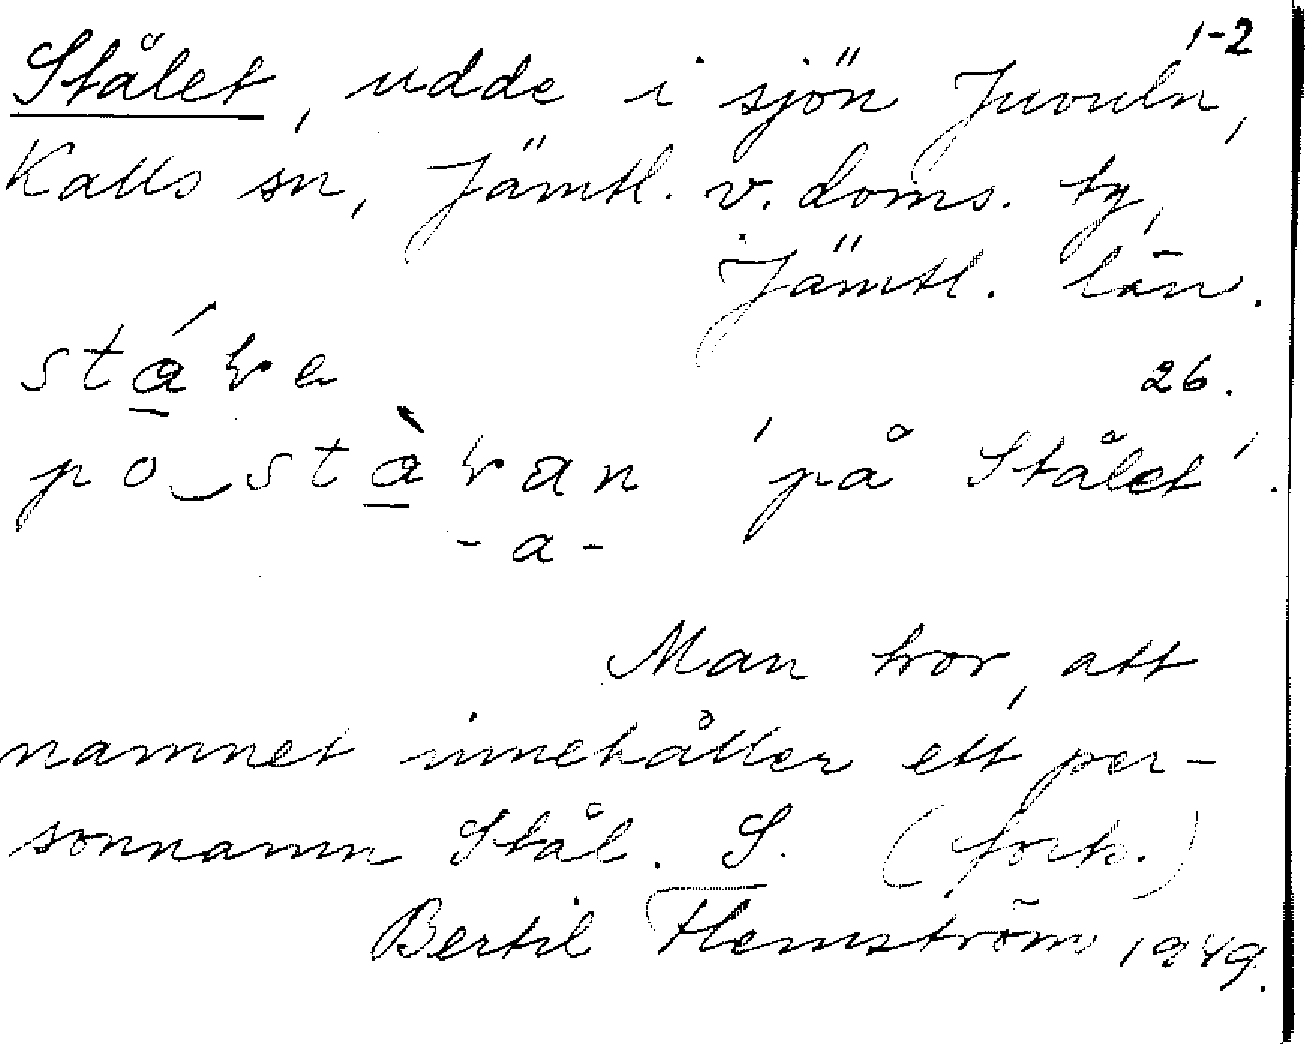 1-2
Stålet, udde i sjön Juvuln,
Kalls sn, Jämtl. v. doms. tg,
Jämtl. län.
26.
'på Stålet'.
-a-
Man tror, att
namnet innehåller ett per-
sonnamn Stål. S. (fork.)
Bertil Flemström 1949.